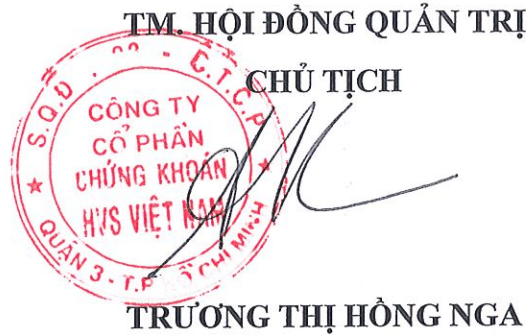 TM. HỘI ĐỒNG QUẢN TRỊ
CHỦ TỊCH
S.Q.Đ - C.T.C.P
CÔNG TY
CỔ PHẦN
CHỨNG KHOÁN
HVS VIỆT NAM
QUẬN 3 - T.P HỒ CHÍ MINH
TRƯƠNG THỊ HỒNG NGA